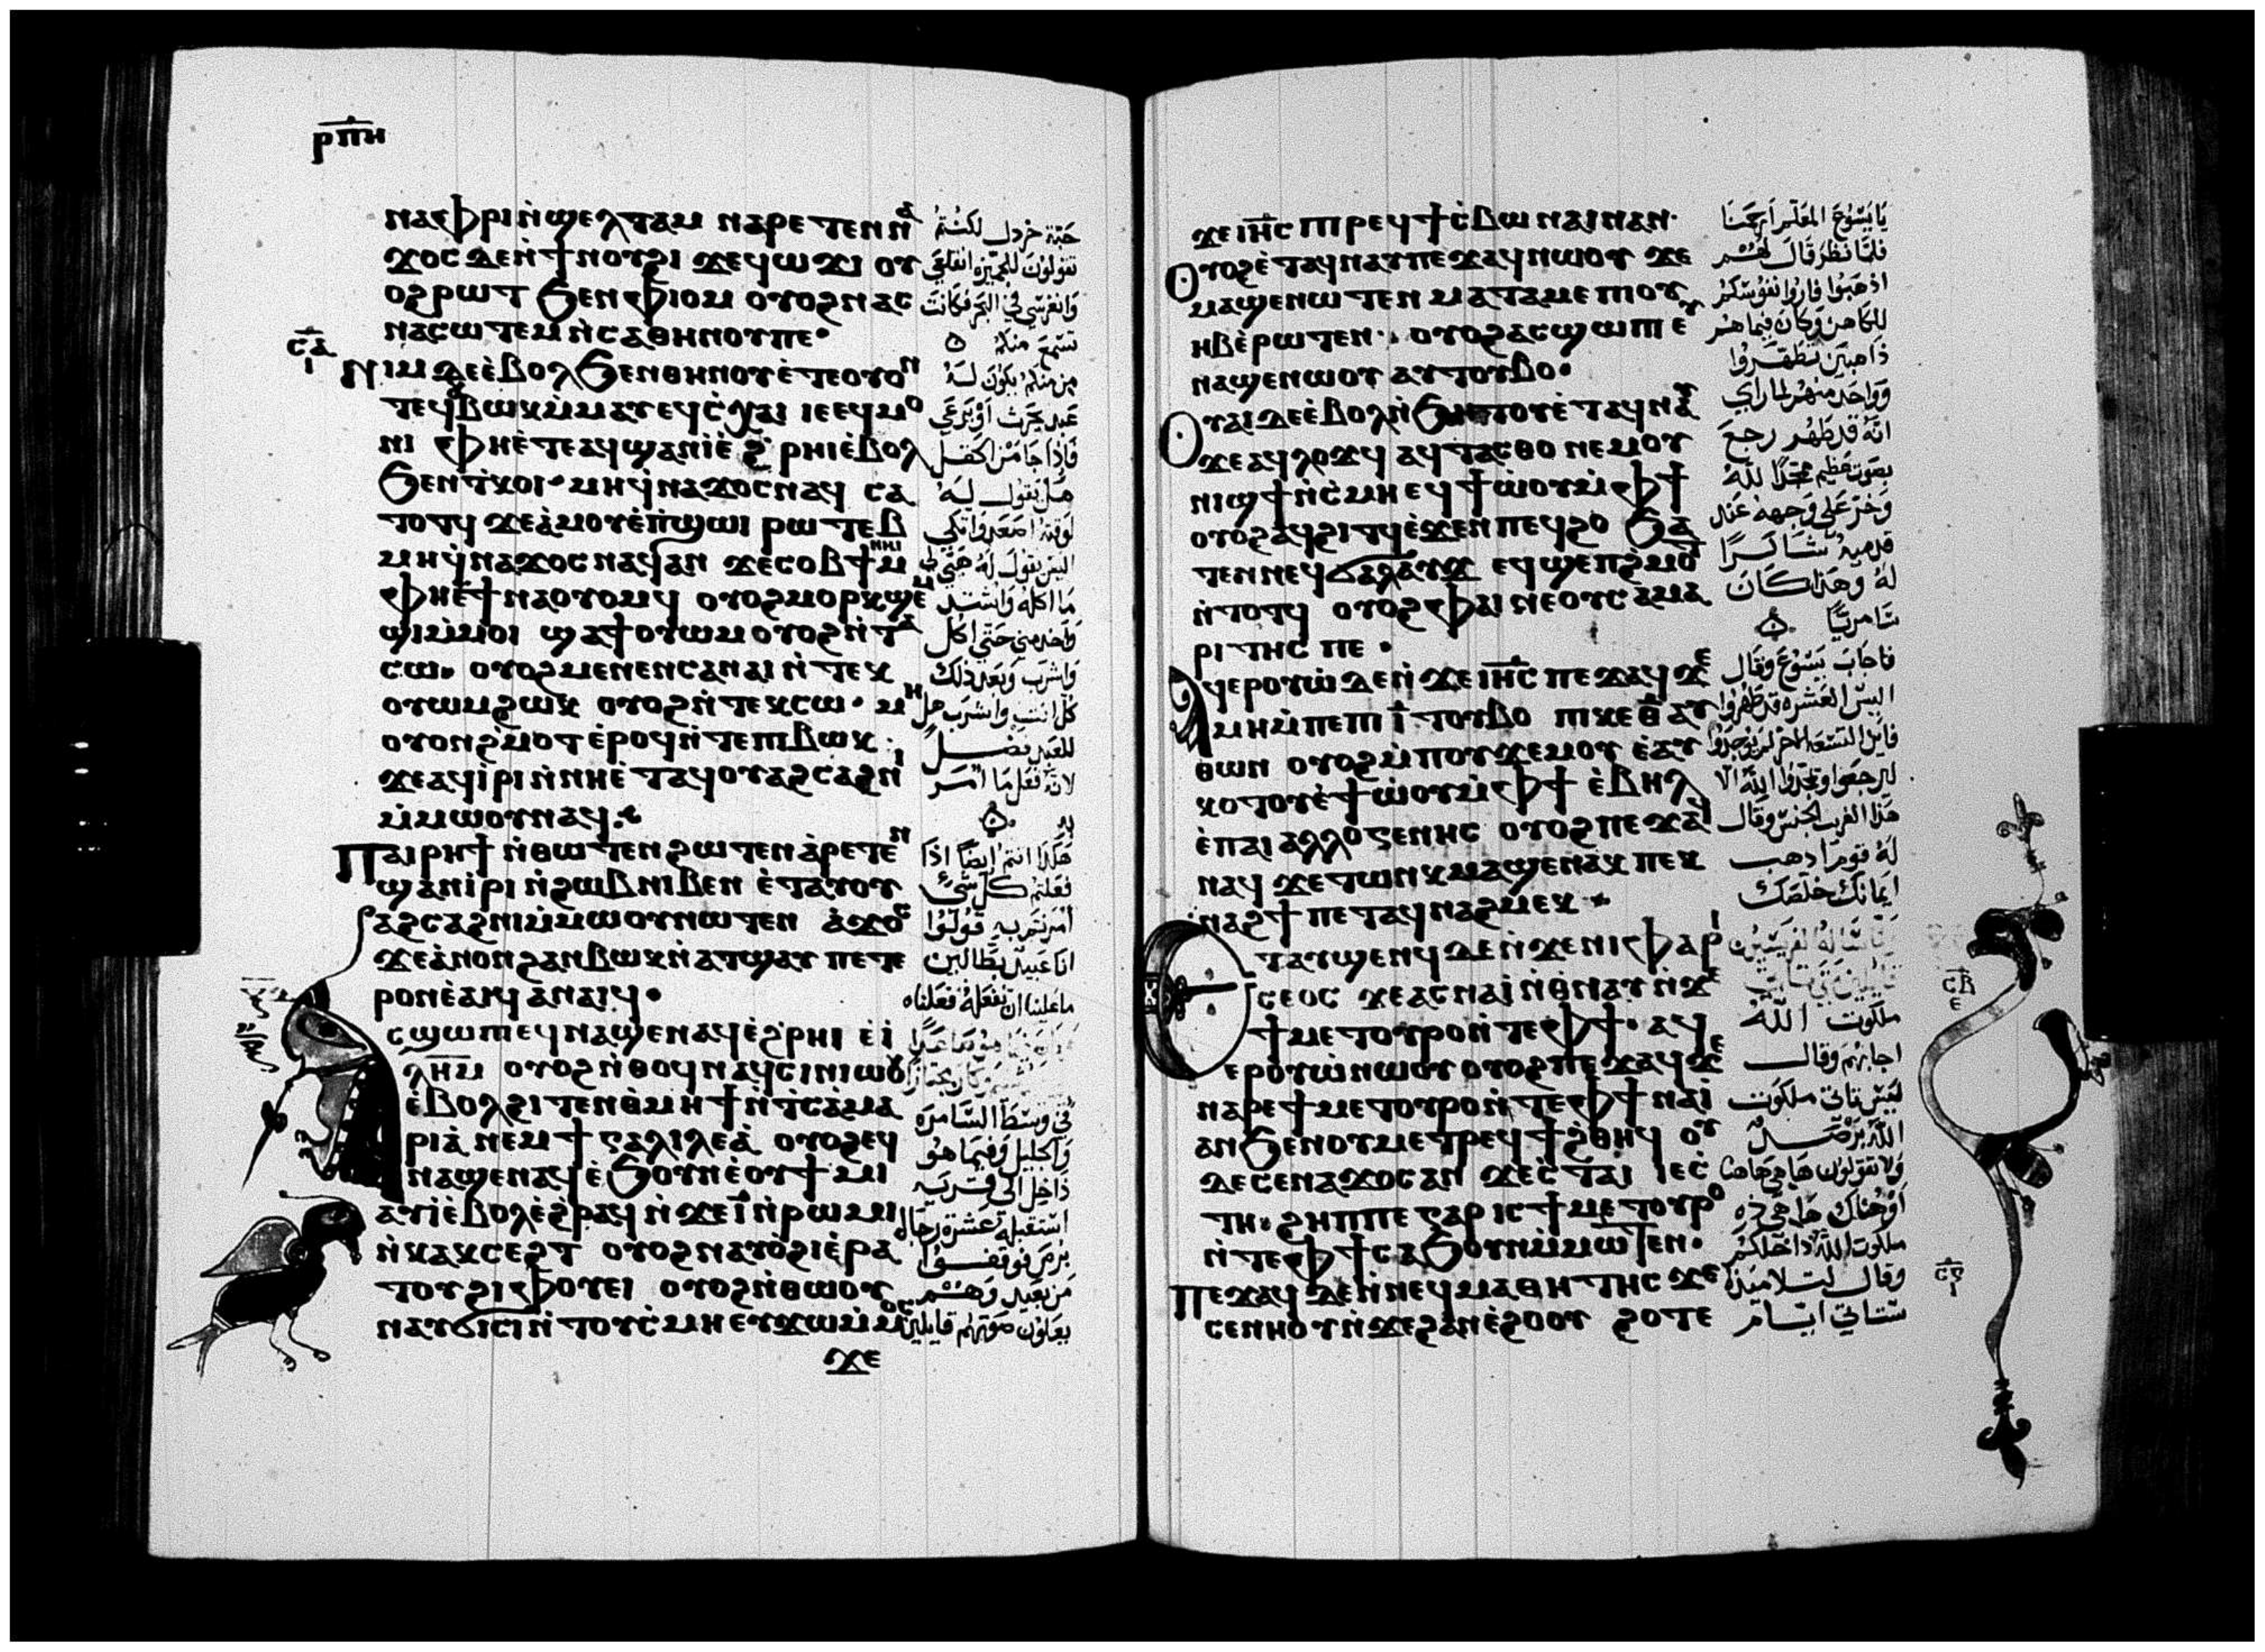 ⲣⲡⲏ
ⲛⲁⲫⲣⲓⲛ̀ϣⲉⲗⲧⲁⲙ ⲛⲁⲣⲉⲧⲉⲛⲛⲁ
ϫⲟⲥ ⲇⲉⲛ̀ϯⲛⲟⲩϩⲓ ϫⲉϥⲱϫⲓ ⲟⲩ
ⲟϩⲣⲱⲧ ϧⲉⲛⲫⲓⲟⲙ ⲟⲩⲟϩⲛⲁⲥ
ⲛⲁⲥⲱⲧⲉⲙ ⲛ̀ⲥⲁⲑⲏⲛⲟⲩⲡⲉ·
ⲥⲁ
ⲓ
ⲛⲓⲙ ⲇⲉⲉ̀ⲃⲟⲗϧⲉⲛⲑⲏⲛⲟⲩⲉ̀ⲧⲉⲟⲩⲟⲛ
ⲧⲉϥⲃⲱⲕⲙ̀ⲙⲁⲩⲉϥⲥ̀ⲭⲁⲓ ⲓⲉⲉϥⲙⲟ
ⲛⲓ ⲫⲏⲉ̀ⲧⲉⲁϥϣⲁⲛⲓ̀ⲉ̀ϩⲣⲏⲓⲉ̀ⲃⲟⲗ
ϧⲉⲛⲧ̀ⲕⲟⲓ· ⲙⲏϥ̀ⲛⲁϫⲟⲥⲛⲁϥ ⲥⲁ
ⲧⲟⲧϥ ϫⲉⲁ̀ⲙⲟⲩⲉ̀ⲡ̀ϣⲱⲓ ⲣⲱⲧⲉⲃ
ⲙⲏϥ̀ⲛⲁϫⲟⲥ ⲛⲁϥⲁⲛ ϫⲉⲥⲟⲃϯⲙⲏⲓ
ⲫⲏⲉ̀ϯⲛⲁⲟⲩⲟⲙϥ ⲟⲩⲟϩⲙⲟⲣⲕϣⲉⲙ
ϣⲓⲙ̀ⲙⲟⲓ ϣⲁϯⲟⲩⲱⲙⲟⲩⲟϩⲛ̀ⲧⲁ
ⲥⲱ· ⲟⲩⲟϩⲙⲉⲛⲉⲛⲥⲁⲛⲁⲓ ⲛ̀ⲧⲉⲕ
ⲟⲩⲱⲙϩⲱⲕ ⲟⲩⲟϩⲛ̀ⲧⲉⲕⲥⲱ· ⲙⲏ
ⲟⲩⲟⲛϩ̀ⲙⲟⲧ ⲉ̀ⲣⲟϥⲛ̀ⲧⲉⲡⲓⲃⲱⲕ·
ϫⲉⲁϥⲓ̀ⲣⲓⲛ̀ⲛⲏⲉ̀ⲧⲁϥⲟⲩⲁϩⲥⲁϩⲛⲓ
ⲙ̀ⲙⲱⲟⲩⲛⲁϥ·
ⲡⲁⲓⲣⲏϯ ⲛ̀ⲑⲱⲧⲉⲛϩⲱⲧⲉⲛⲁ̀ⲣⲉⲧⲉⲛ
ϣⲁⲛⲓ̀ⲣⲓ ⲛ̀ϩⲱⲃⲛⲓⲃⲉⲛ ⲉ̀ⲧⲁⲩⲟⲩ
ⲁϩⲥⲁϩⲛⲓⲙ̀ⲙⲱⲟⲩⲛⲱⲧⲉⲛ ⲁ̀ϫⲟⲥ
ϫⲉⲁ̀ⲛⲟⲛϩⲁⲛⲃⲱⲕⲛ̀ⲁⲧϣⲁⲩ ⲡⲉⲧⲉ
ⲣⲟⲛⲉ̀ⲁⲓϥ ⲁⲛⲁⲓϥ·
ⲥϣⲱⲡⲓⲉϥⲛⲁϣⲉⲛⲁϥⲉ̀ϩⲣⲏⲓ ⲉ̀ⲓ̀
ⲗⲏⲙ ⲟⲩⲟϩⲛ̀ⲑⲟϥⲛⲁϥⲥⲓⲛⲓⲱⲟⲩ
ⲉ̀ⲃⲟⲗϩⲓⲧⲉⲛⲑ̀ⲙⲏϯⲛ̀ⲧ̀ⲥⲁⲙⲁ
ⲣⲓⲁ̀ ⲛⲉⲙϯⲅⲁⲗⲓⲗⲉⲁ̀ ⲟⲩⲟϩⲉϥ
ⲛⲁϣⲉⲛⲁϥⲉ̀ϧⲟⲩⲛⲉ̀ⲟⲩϯⲙⲓ
ⲁⲩⲓ̀ⲉ̀ⲃⲟⲗⲉ̀ϩⲣⲁϥ ⲛ̀ϫⲉⲓ̅ⲛ̀ⲣⲱⲙⲓ
ⲛ̀ⲕⲁⲕⲥⲉϩⲧ ⲟⲩⲟϩⲛⲁⲩⲟ̀ϩⲓⲉ̀ⲣⲁ
ⲧⲟⲩϩⲓⲫⲟⲩⲉⲓ ⲟⲩⲟϩⲛ̀ⲑⲱⲟⲩ
ⲛⲁⲩϭⲓⲥⲓⲛ̀ⲧⲟⲩⲥ̀ⲙⲏ ⲉⲩϫⲱⲙ̀ⲙⲟⲥ
ϫⲉ
حبة خردل لكنتم
تقولون للجميزه انقلعي
وانغرسي في البحر فكانت
تسمع منكم
من منكم يكون له
عبد يحرث او يرعي
فاذا جا من الحقل
هل يقول له
لوقته اصعد واتكي
اليس يقول له هيي لي
ما اكله واشتد
واخدمني حتي اكل
واشرب وبعد ذلك
كل انت واشرب هل
للعبد فضل
لانه فعل ما امر
به
هكذا انتم ايضا اذا
فعلتم كل شي
امرتم به قولوا
انا عبيد بطالين
ما علينا ان نفعله فعلناه
في وسط السامره
والجليل وفيما هو
داخل الي قريه
استقبله عشرة رجال
برص فوقفوا
من بعيد وهم
يعلون صوتهم قايلين
ϫⲉⲓⲏ̅ⲥ ⲡⲓⲣⲉϥϯⲥ̀ⲃⲱ ⲛⲁⲓⲛⲁⲛ·
ⲟⲩⲟϩⲉ̀ⲧⲁϥⲛⲁⲩⲡⲉϫⲁϥⲛⲱⲟⲩ ϫⲉ
ⲙⲁϣⲉⲛⲱⲧⲉⲛ ⲙⲁⲧⲁⲙⲉⲡⲓⲟⲩ
ⲏⲃⲉ̀ⲣⲱⲧⲉⲛ· ⲟⲩⲟϩⲁⲥϣⲱⲡⲓ ⲉⲩ
ⲛⲁϣⲉⲛⲱⲟⲩ ⲁⲩⲧⲟⲩⲃⲟ·
ⲟⲩⲁⲓ ⲇⲉⲉ̀ⲃⲟⲗⲛ̀ϧⲏⲧⲟⲩⲉ̀ⲧⲁϥⲛⲁⲩ
ϫⲉⲁϥⲗⲟϫϥ ⲁϥⲧⲁⲥⲑⲟ ⲛⲉⲙⲟⲩ
ⲛⲓϣϯⲛ̀ⲥ̀ⲙⲏ ⲉϥϯⲱ̀ⲟⲩⲙ̀ⲫϯ
ⲟⲩⲟϩⲁϥϩⲓⲧϥⲉ̀ϫⲉⲛ ⲡⲉϥϩⲟ ϧⲁ
ⲧⲉⲛⲛⲉϥϭⲁⲗⲁⲩϫ ⲉϥϣⲉⲡϩ̀ⲙⲟⲧ
ⲛ̀ⲧⲟⲧϥ ⲟⲩⲟϩⲫⲁⲓ ⲛⲉⲟⲩⲥⲁⲙⲁ
ⲣⲓⲧⲏⲥ ⲡⲉ·
ⲁϥⲉⲣⲟⲩⲱ̀ ⲇⲉⲛ̀ϫⲉⲓⲏ̅ⲥ ⲡⲉϫⲁϥ ϫⲉ
ⲙⲏⲙ̀ⲡⲉⲡⲓⲓ̅ ⲧⲟⲩⲃⲟ ⲡⲓⲕⲉⲑ̅ ⲁⲩ
ⲑⲱⲛ ⲟⲩⲟϩⲙ̀ⲡⲟⲩϫⲉⲙⲟⲩ ⲉ̀ⲁⲩ
ⲕⲟⲧⲟⲩⲉ̀ϯⲱ̀ⲟⲩⲙ̀ⲫϯ ⲉ̀ⲃⲏⲗ
ⲉ̀ⲡⲁⲓⲁⲗⲗⲟⲅⲉⲛⲏⲥ ⲟⲩⲟϩⲡⲉϫⲁϥ
ⲛⲁϥ ϫⲉⲧⲱⲛⲕⲙⲁϣⲉⲛⲁⲕ ⲡⲉⲕ
ⲛⲁϩϯ ⲡⲉⲧⲁϥⲛⲁϩⲙⲉⲕ·
ⲉⲧⲁⲩϣⲉⲛϥ ⲇⲉⲛ̀ϫⲉⲛⲓⲫⲁⲣⲓ
ⲥⲉⲟⲥ ϫⲉⲁⲥⲛⲁⲓ̀ⲛ̀ⲑ̀ⲛⲁⲩⲛ̀ϫⲉ
ϯⲙⲉⲧⲟⲩⲣⲟⲛ̀ⲧⲉⲫϯ· ⲁϥ
ⲉⲣⲟⲩⲱ̀ⲛⲱⲟⲩ ⲟⲩⲟϩⲡⲉϫⲁϥ ϫⲉ
ⲛⲁⲣⲉϯⲙⲉⲧⲟⲩⲣⲟⲛ̀ⲧⲉⲫϯ ⲛⲁⲓ̀
ⲁⲛϧⲉⲛⲟⲩⲙⲉⲧⲣⲉϥϯϩ̀ⲑⲏϥ ⲟⲩ
ⲇⲉⲥⲉⲛⲁϫⲟⲥⲁⲛ ϫⲉⲥ̀ⲧⲁⲓ ⲓⲉⲥ̀
ⲧⲏ· ϩⲏⲡⲡⲉⲅⲁⲣ ⲓⲥϯⲙⲉⲧⲟⲩⲣⲟ
ⲛ̀ⲧⲉⲫϯⲥⲁϧⲟⲩⲛⲙ̀ⲙⲱⲧⲉⲛ·
ⲡⲉϫⲁϥ ⲇⲉⲛ̀ⲛⲉϥⲙⲁⲑⲏⲧⲏⲥ ϫⲉ
ⲥⲉⲛⲏⲟⲩⲛ̀ϫⲉϩⲁⲛⲉ̀ϩⲟⲟⲩ ϩⲟⲧⲉ
يا يسوع المعلم ارحمنا
فلما نظر قال لهم
اذهبوا فاروا نفوسكم
للكاهن وكان فيما هم
ذاهبين تطهروا
وواحد منهم لما راي
انه قد طهر رجع
بصوت عظيم ممجدا لله
وخر علي وجهه عند
قدميه شاكرا
له وهذا كان
سامريا
فاجاب يسوع وقال
اليس العشره قد طهروا
فاين التسعه الاخر لم يوجدوا
ليرجعوا ويمجدوا الله الا
هذا الغريب الجنس وقال
له قوم اذهب
ايمانك خلصك
ملكوت الله
اجابهم وقال
ليس تاتي ملكوت
الله برصد
ولا تقولون ها هي هاهنا
او هناك ها هي ذه
ملكوت الله داخلكم
وقال لتلاميذه
ستاتي ايام
ⲥⲃ
ⲉ
ⲥⲅ
ⲓ